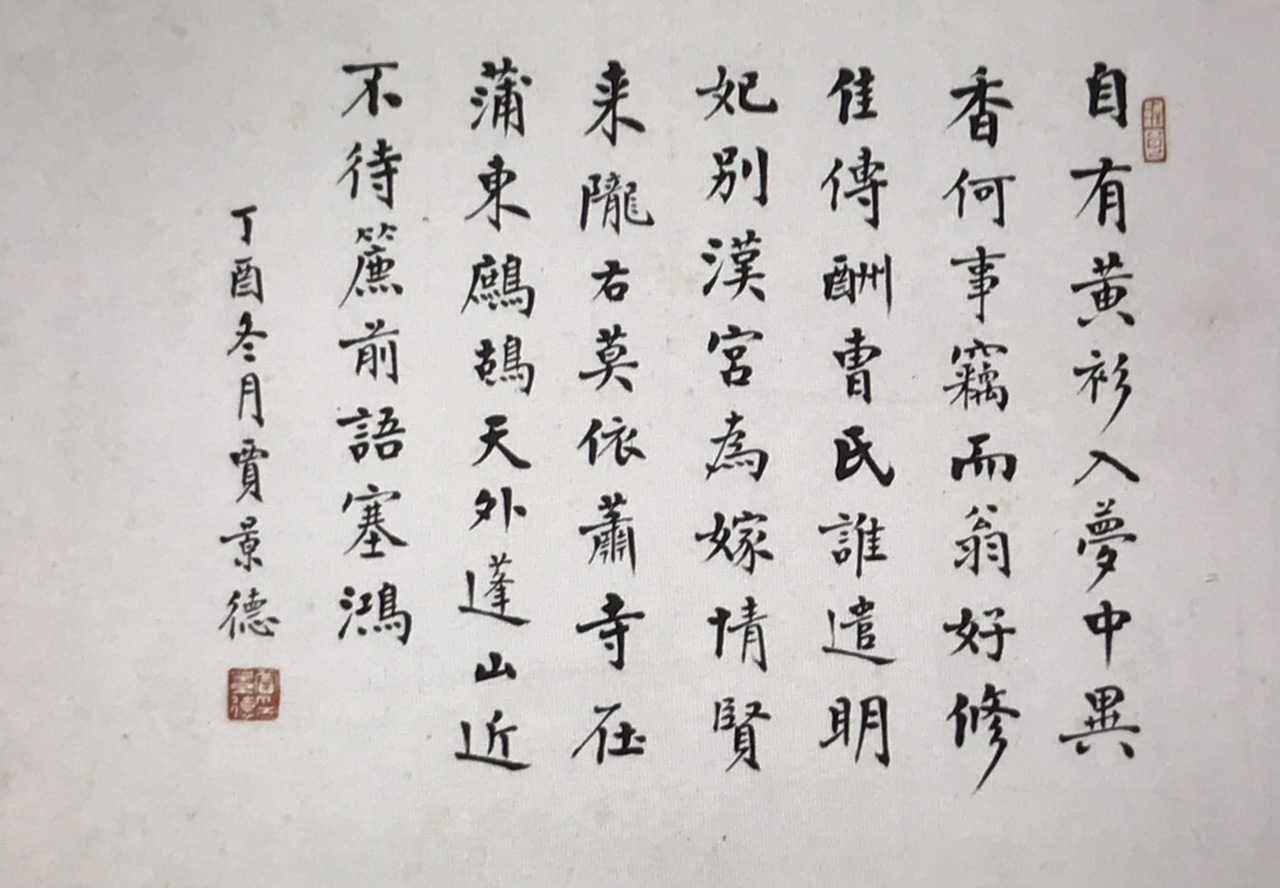 自有黄衫入夢中異
香何事竊而翁好修
佳傳酬曹氏誰遣明
妃別漢宮為嫁情賢
来隴右莫依蕭寺在
蒲東鷓鴣天外蓬山近
不待簾前語塞鴻
丁酉冬月賈景德